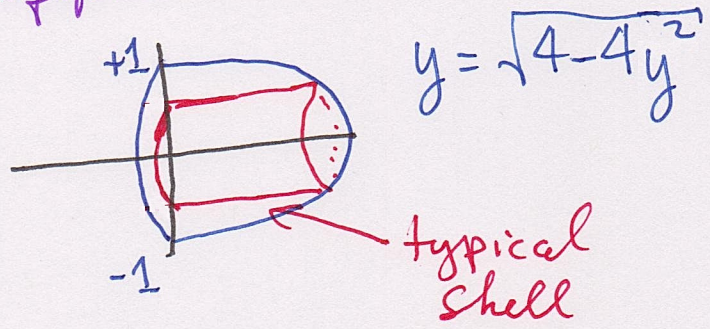 +1
y = √4-4y²
-1
typical
shell